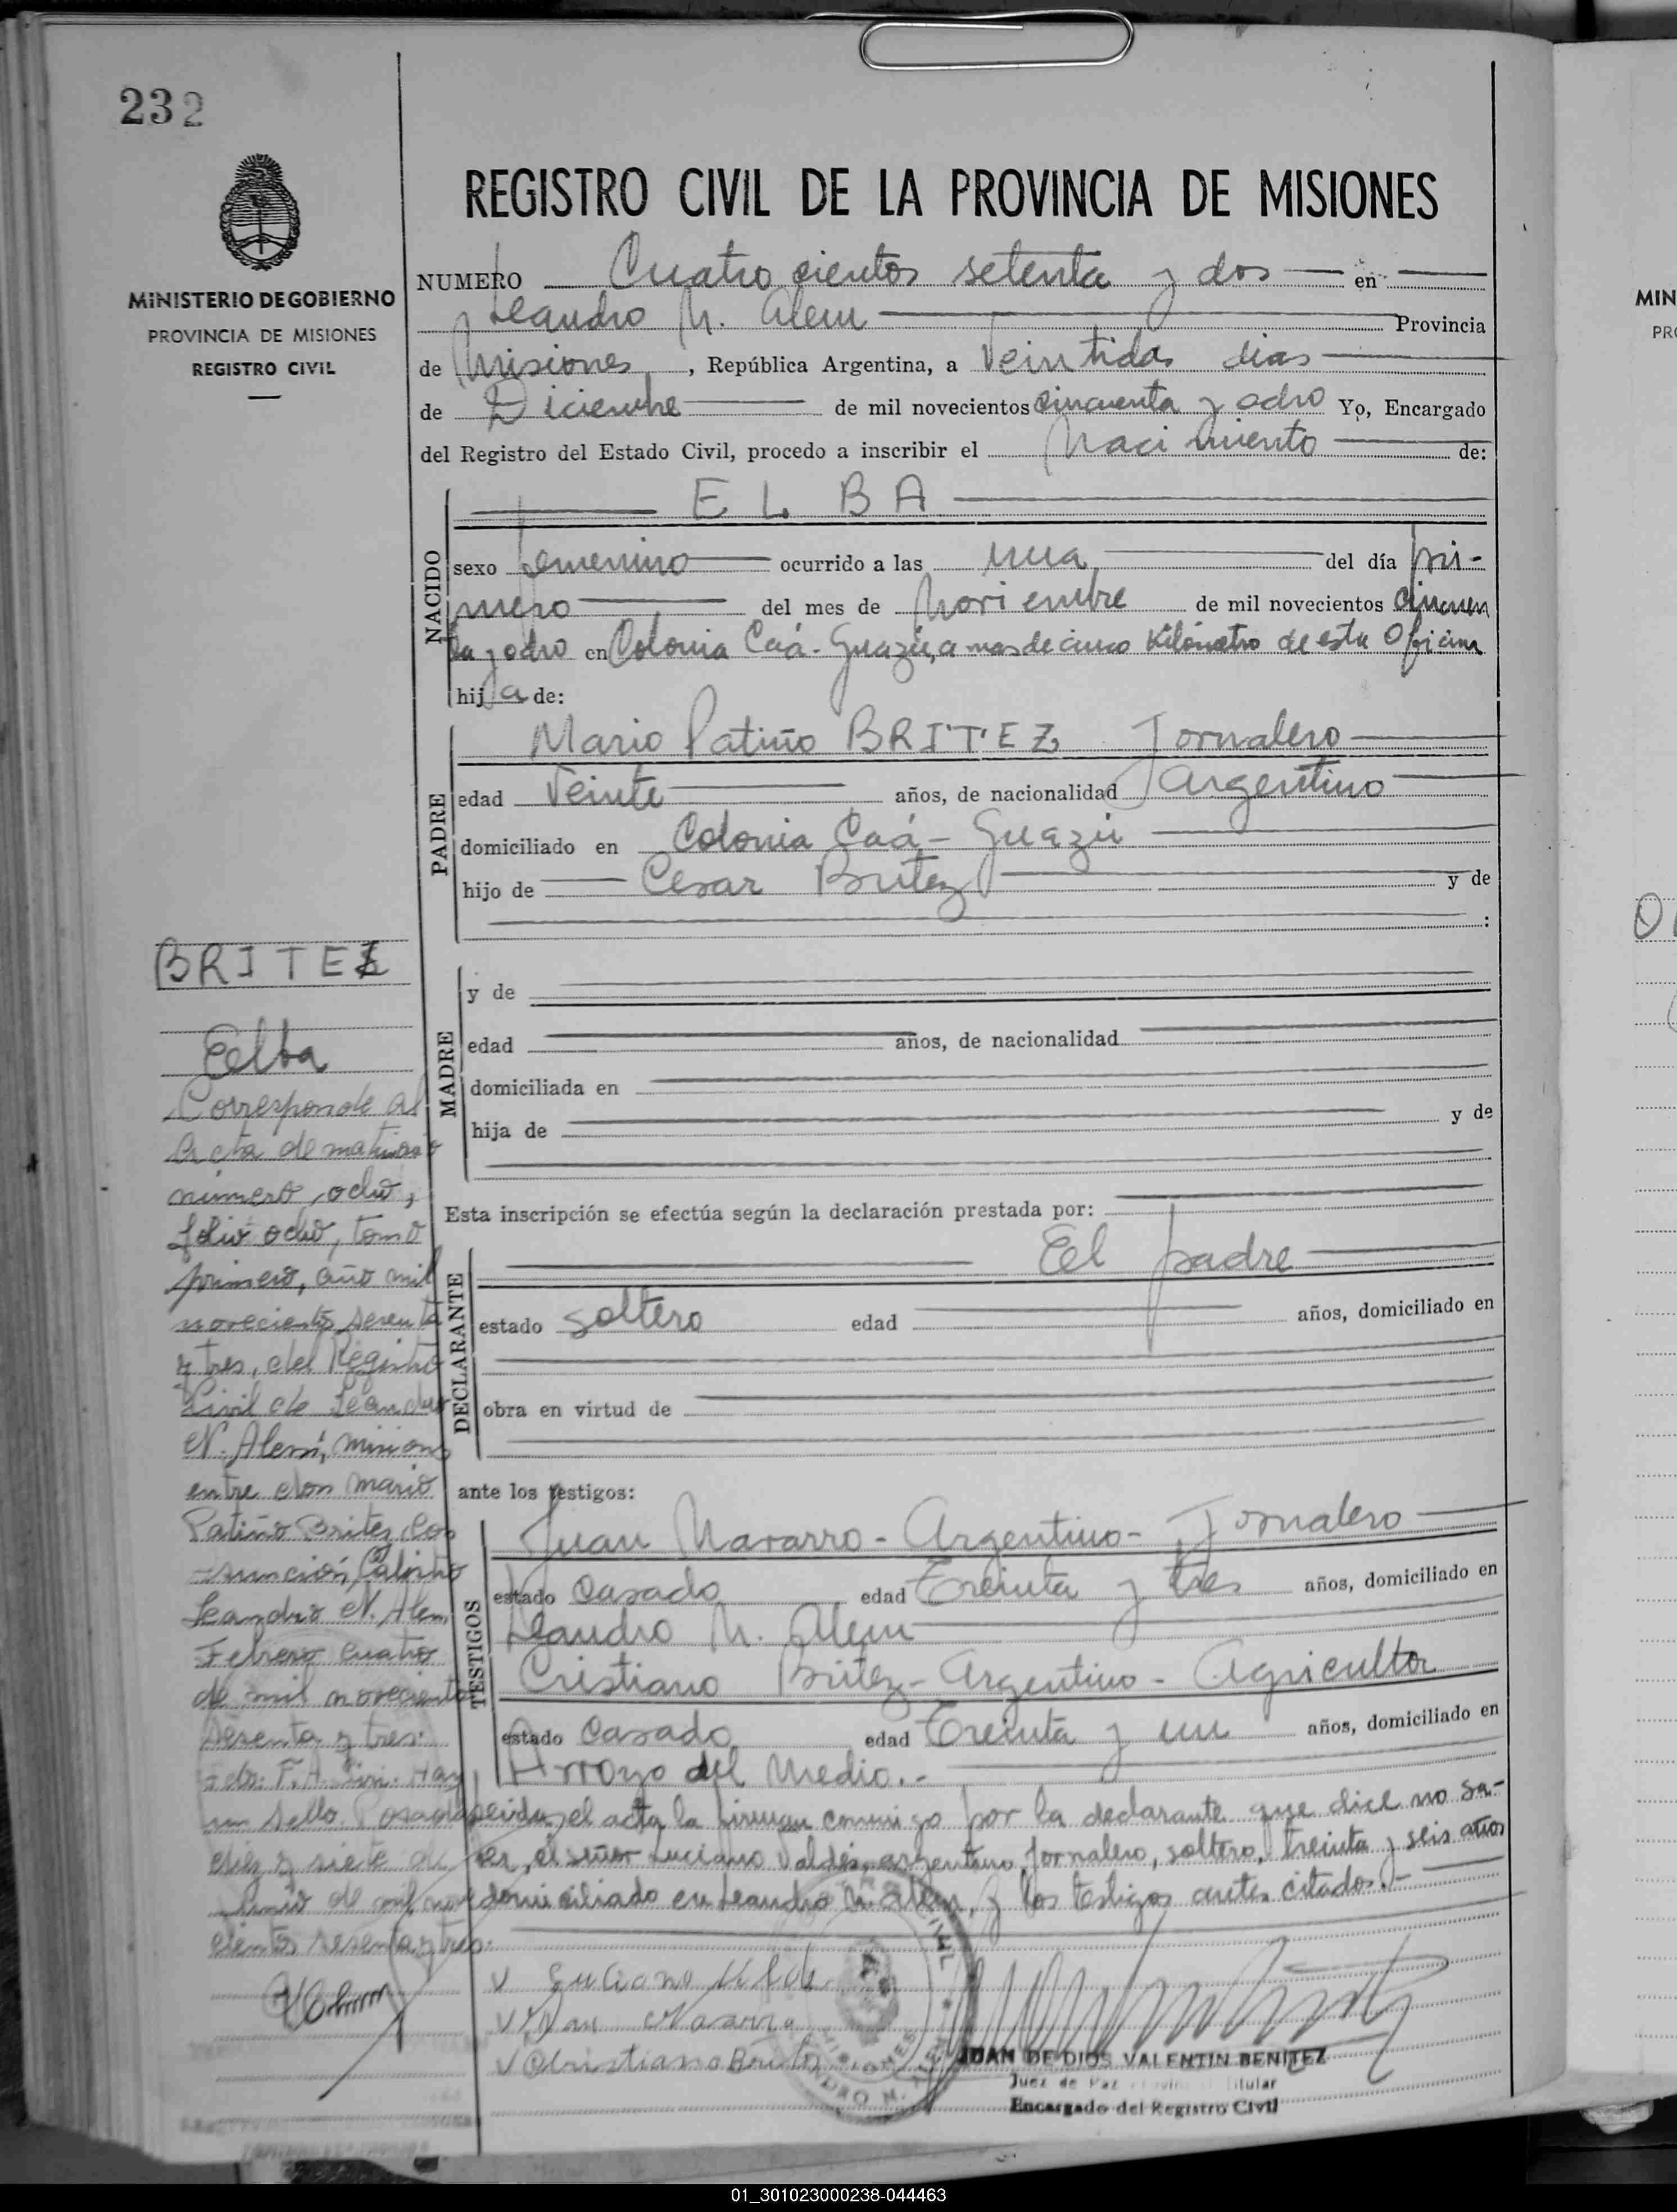 232
MINISTERIO DE GOBIERNO
PROVINCIA DE MISIONES
REGISTRO CIVIL
REGISTRO CIVIL DE LA PROVINCIA DE MISIONES
NUMERO Cuatrocientos setenta y dos en
Leandro N. Alem Provincia
de Misiones, República Argentina, a Veintidos dias
de Diciembre de mil novecientos cincuenta y ocho Yo, Encargado
del Registro del Estado Civil, procedo a inscribir el Nacimiento de:
NACIDO
ELBA
sexo femenino ocurrido a las una del día pri-
mero del mes de Noviembre de mil novecientos cincuen
ta y ocho en Colonia Caá-Guazú, a mas de cinco Kilómetro de esta Oficina
hija de:
PADRE
Mario Patiño BRITEZ Jornalero
edad Veinte años, de nacionalidad Argentino
domiciliado en Colonia Caá-Guazú
hijo de Cesar Britez y de
:
MADRE
y de
edad años, de nacionalidad
domiciliada en
hija de y de
Esta inscripción se efectúa según la declaración prestada por:
DECLARANTE
El padre
estado soltero edad años, domiciliado en
obra en virtud de
ante los testigos:
TESTIGOS
Juan Navarro - Argentino - Jornalero
estado Casado edad Treinta y tres años, domiciliado en
Leandro N. Alem
Cristiano Britez - Argentino - Agricultor
estado Casado edad Treinta y un años, domiciliado en
Arroyo del Medio.-
el acta la firman conmigo por la declarante que dice no sa-
ber, el señor Luciano Valdés, argentino, jornalero, soltero, treinta y seis años
domiciliado en Leandro N. Alem, y los testigos antes citados.-
Luciano
Juan Navarro
Cristiano Britez
JUAN DE DIOS VALENTIN BENITEZ
Juez de Paz Titular
Encargado del Registro Civil
BRITEZ
Elba
Corresponde al
Acta de matrimo
número, ocho,
folio ocho, tomo
primero, año mil
novecientos sesenta
y tres, del Registro
Civil de Leandro
N. Alem, Misiones
entre don Mario
Patiño Britez, con
Asunción
Leandro N. Alem,
Febrero cuatro
de mil novecientos
sesenta y tres.
Fdo: F.A. Hay
un sello. Posadas
diez y siete de
de mil nove
cientos sesenta y tres.
01_301023000238-044463